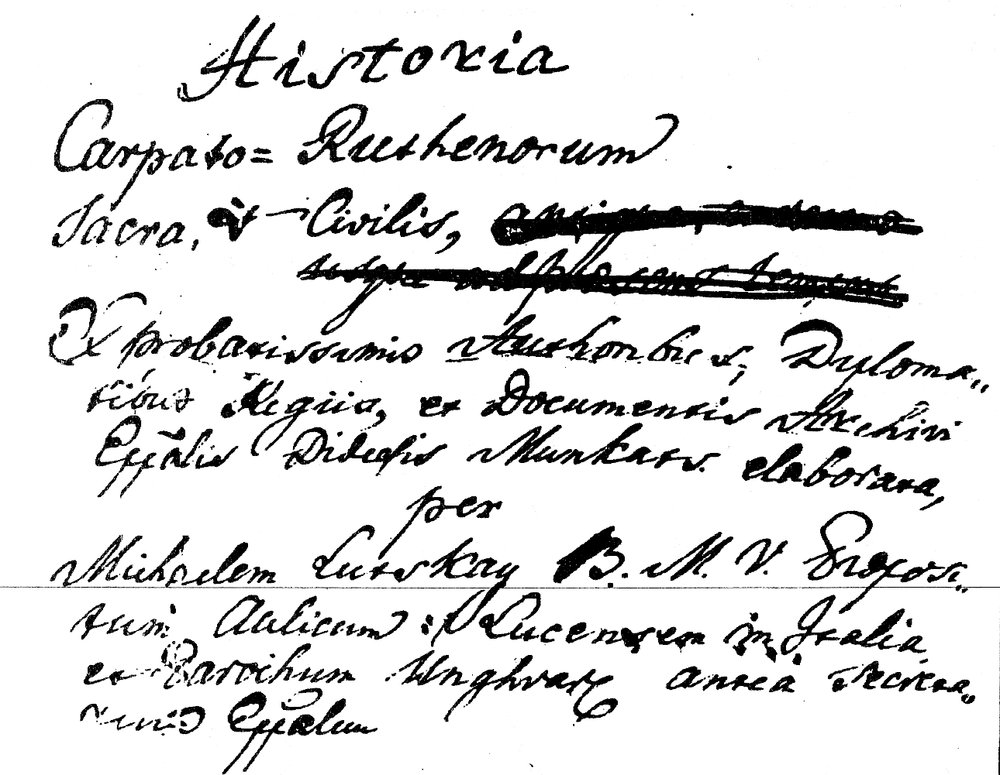 Historia
Carpato= Ruthenorum
Sacra, et Civilis,
usque ad
Ex probatissimis Authoribus, Dyploma„
tibus Regiis, et Documentis Archivi
Eppalis Dioecesis Munkats. elaborata,
per
Michaelem Lutskay B. M. V.
Aulicum Lucensem in Italia
et Parochum Unghvar antea Secreta„
Eppalem